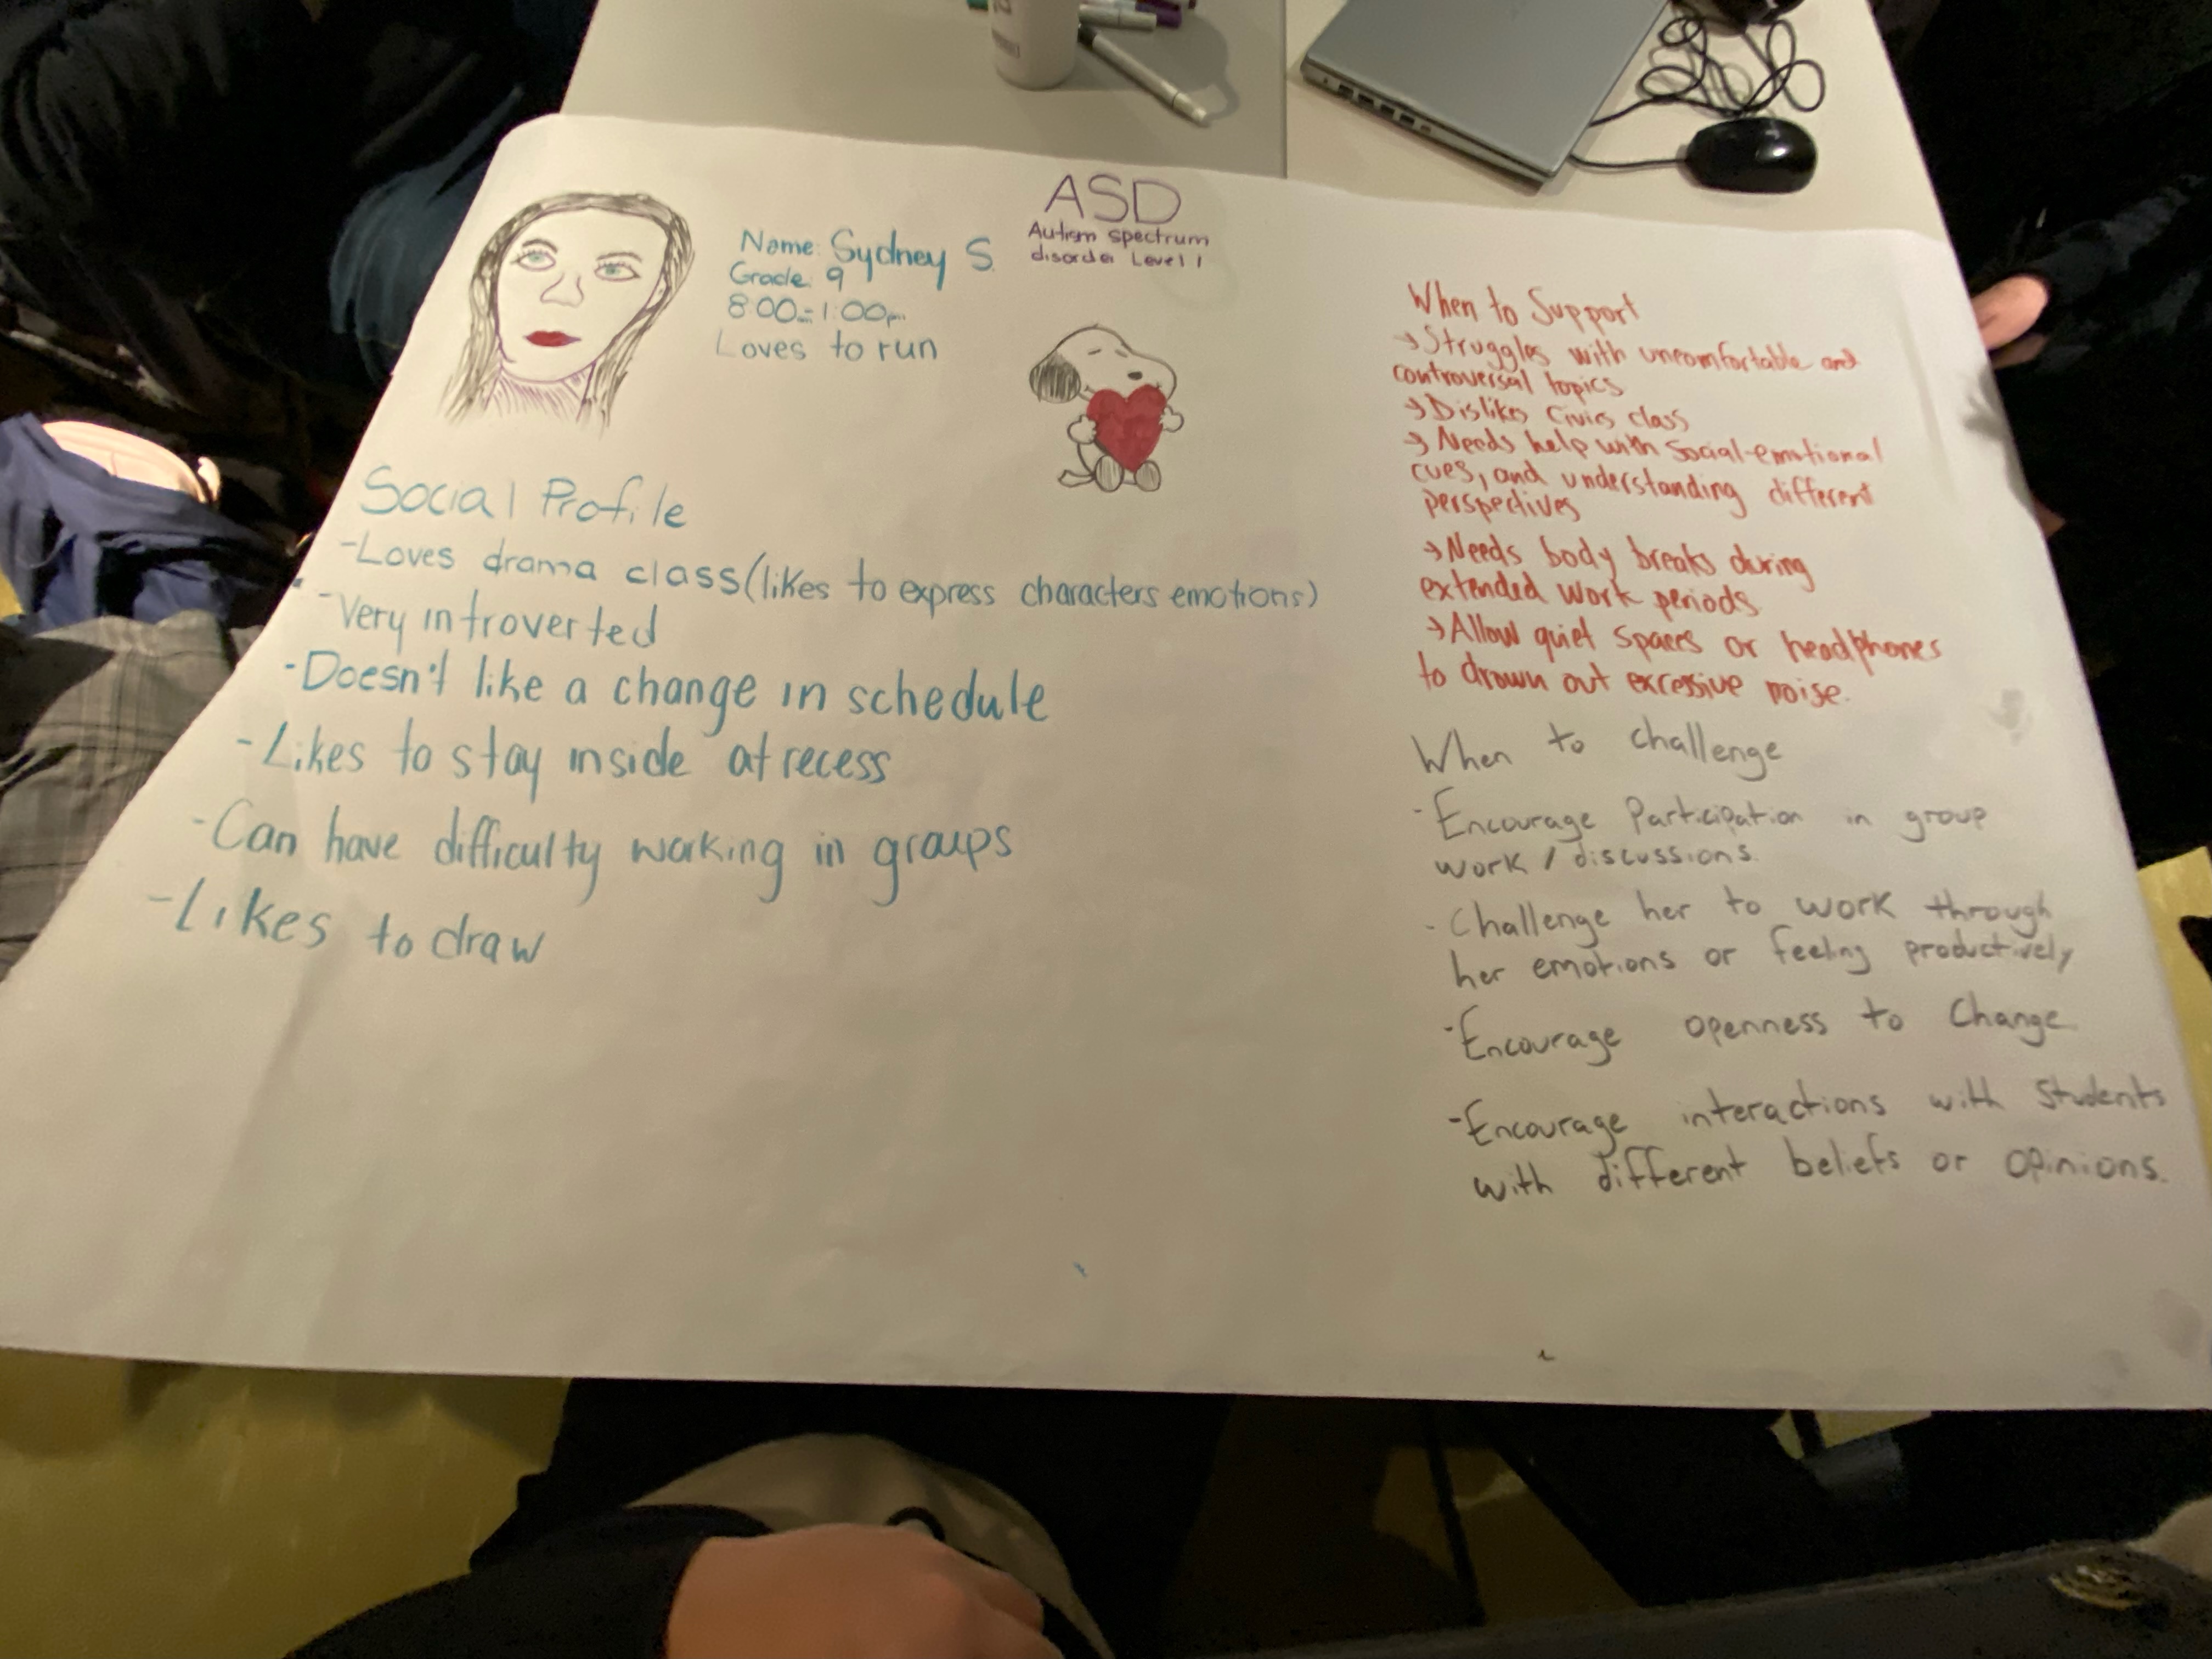 ASD
Autism spectrum
disorder Level 1
Name: Sydney S.
Grade: 9
8:00am-1:00pm
Loves to run
Social Profile
-Loves drama class(likes to express characters emotions)
-Very introverted
-Doesn't like a change in schedule
-Likes to stay inside at recess
-Can have difficulty working in groups
-Likes to draw
When to Support
→Struggles with uncomfortable and
controversal topics
→Dislikes Civics class
→Needs help with social-emotional
cues, and understanding different
perspectives
→Needs body breaks during
extended work periods
→Allow quiet spaces or headphones
to drown out excessive noise.
When to challenge
-Encourage Participation in group
work / discussions.
-Challenge her to work through
her emotions or feeling productively
-Encourage openness to Change.
-Encourage interactions with Students
with different beliefs or opinions.